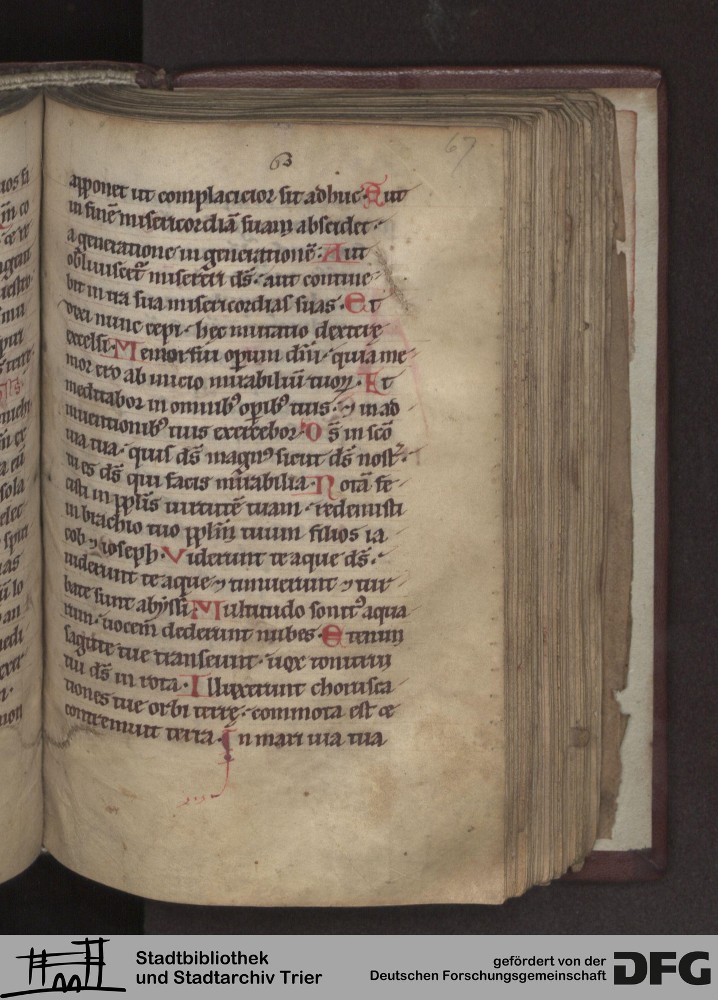 63
67
apponet ut complacicior sit adhuc. Aut
in finē misericordiā suam abscidet.
a generatione in generationē. Aut
obliuiscet᷑ miserei ds̄. aut contine
bit in ira sua misericordias suas. Et
dixi nunc cepi. hec mutatio dextere
excelsi. Memor fui opum dn̄i. quia me
mor ero ab inicio mirabiliū tuoꝝ. Et
meditabor in omnibꝰ opibꝰ tuis. ⁊ in ad
inuentionibꝰ tuis exercebor. Ds̄ in scō
uia tua. quis ds̄ magnꝰ sicut ds̄ nost᷑.
tu es ds̄ qui facis mirabilia. Notā fe
cisti in ppl̄is uirtutē tuam. redemisti
in brachio tuo ppl̄m tuum filios ia
cob ⁊ ioseph. Viderunt te aque ds̄.
uiderunt te aque ⁊ timuerunt ⁊ tur
bate sunt abyssi. Multitudo sonitꝰ aqua
rum. uocem dederunt nubes. Etenim
sagitte tue transeunt. uox tonitrui
tui ds̄ in rota. Illuxerunt chorusca
tiones tue orbi terrę. commota est ⁊
contremuit terra. In mari uia tua
Stadtbibliothek
und Stadtarchiv Trier
gefördert von der
Deutschen Forschungsgemeinschaft
DFG